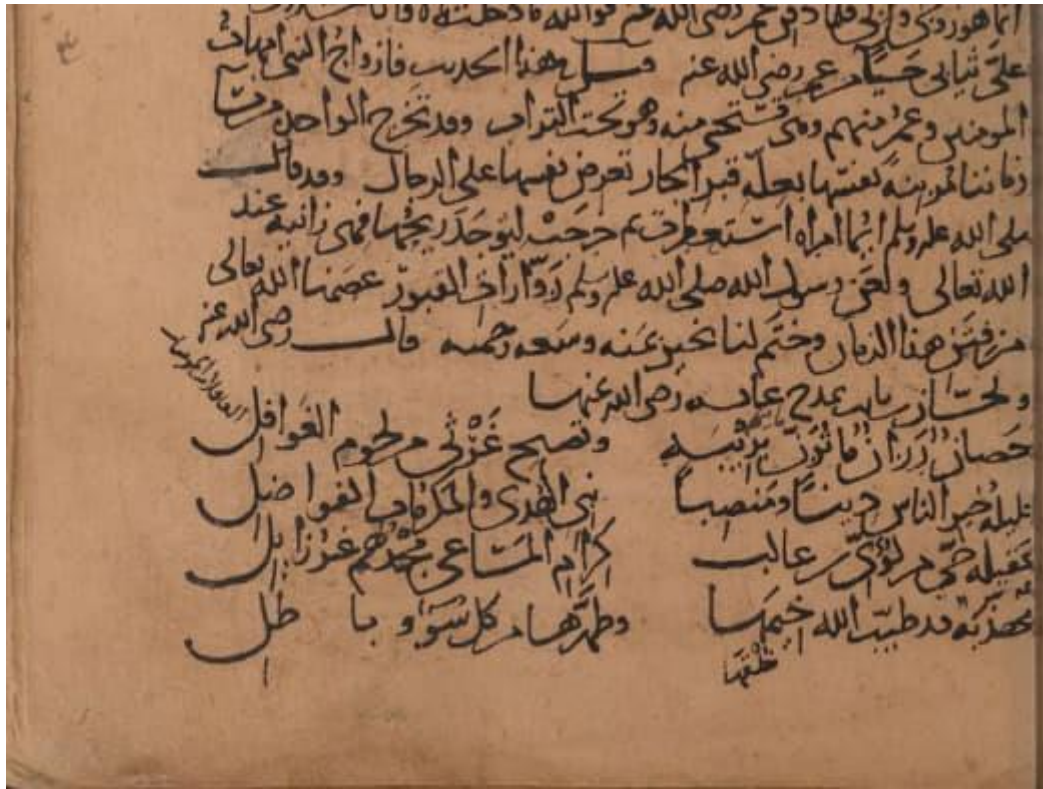 انما هو زوجي وابي فلما دفن عمر رضي الله عنه فوالله ما دخلته الا وانا مشدودة
علي ثيابي حياء من عمر رضي الله عنه هذا الحديث فازواج النبي امهات
المومنين وعمر منهم وهي تستحي منه وهو تحت التراب وقد تخرج الواحدة من نساء
زماننا نفسها بعلة قبر الجار تعرض نفسها على الرجال وقد قال
صلى الله عليه وسلم ايما امراة استعطرت ثم خرجت ليوجد ريحها فهي زانية عند
الله تعالى ولعن رسول الله صلى الله عليه وسلم زوارات القبور عصمنا الله تعالى
من فتن هذا الزمان وختم لنا بخير بمنه وسعة رحمته قال رضي الله عنه
ولحسان بن ثابت يمدح عائشة رضي الله عنها
حصان رزان ما تزن بريبة وتصبح غرثى من لحوم الغوافل
حليلة خير الناس دينا ومنصبا نبي الهدى والمكرمات الفواضل
عقيلة حي من لؤي بن غالب كرام المساعي مجدهم غير زايل
مهذبة قد طيب الله خيمها وطهرها من كل سوء وباطل